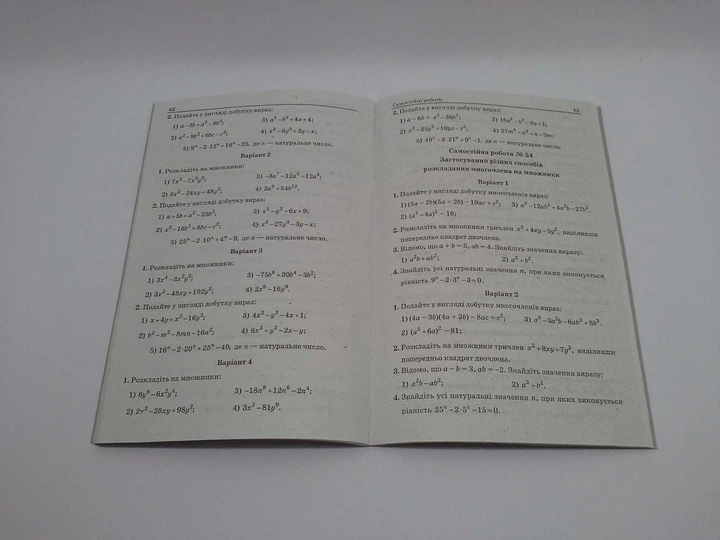 42
2. Подайте у вигляді добутку вираз:
1) a−3b+a²−9b²; 3) a²−b²+4a+4;
2) a²−9b²+6bc−c²; 4) x³−8y³+2y−x;
5) 9ⁿ−2·12ⁿ+16ⁿ−25, де n — натуральне число.
Варіант 2
1. Розкладіть на множники:
1) 7x⁵−7x³y²; 3) −3a⁷−12a⁵−12a³;
2) 3x²−24xy+48y²; 4) 2a⁹−54b¹².
2. Подайте у вигляді добутку вираз:
1) a+5b+a²−25b²; 3) x²−y²−6x+9;
2) x²−16b²+8bc−c²; 4) x³−27y³−3y−x;
5) 25ⁿ−2·10ⁿ+4ⁿ−9, де n — натуральне число.
Варіант 3
1. Розкладіть на множники:
1) 3x⁴−3x²y²; 3) −75b⁶+30b⁴−3b²;
2) 3x²−48xy+192y²; 4) 2x⁶−16y⁹.
2. Подайте у вигляді добутку вираз:
1) x+4y+x²−16y²; 3) 4x²−y²−4x+1;
2) b²−m²−8mn−16n²; 4) 8x³+y³−2x−y;
5) 16ⁿ−2·20ⁿ+25ⁿ−49, де n — натуральне число.
Варіант 4
1. Розкладіть на множники:
1) 6y⁶−6x²y⁴; 3) −18n⁸+12n⁶−2n⁴;
2) 2x²−28xy+98y²; 4) 3x³−81y⁹.
Самостійні роботи 43
2. Подайте у вигляді добутку вираз:
1) a−6b+a²−36b²; 3) 16a²−b²−8a+1;
2) x²−25y²+10yz−z²; 4) 27m³−n³+n−3m;
5) 49ⁿ−2·21ⁿ+9ⁿ−1, де n — натуральне число.
Самостійна робота № 24
Застосування різних способів
розкладання многочлена на множники
Варіант 1
1. Подайте у вигляді добутку многочленів вираз:
1) (5a−2b)(5a+2b)−10ac+c²; 3) a³−12ab²+4a²b−27b³.
2) (a²−4a)²−16;
2. Розкладіть на множники тричлен x²+4xy−5y², виділивши
попередньо квадрат двочлена.
3. Відомо, що a+b=5, ab=4. Знайдіть значення виразу:
1) a²b+ab²; 2) a²+b².
4. Знайдіть усі натуральні значення n, при яких виконується
рівність 9ⁿ−2·3ⁿ−3=0.
Варіант 2
1. Подайте у вигляді добутку многочленів вираз:
1) (4a−3b)(4a+3b)−8ac+c²; 3) a³−3a²b−6ab²+8b³.
2) (a²+6a)²−81;
2. Розкладіть на множники тричлен x²+8xy+7y², виділивши
попередньо квадрат двочлена.
3. Відомо, що a−b=3, ab=−2. Знайдіть значення виразу:
1) a²b−ab²; 2) a²+b².
4. Знайдіть усі натуральні значення n, при яких виконується
рівність 25ⁿ−2·5ⁿ−15=0.